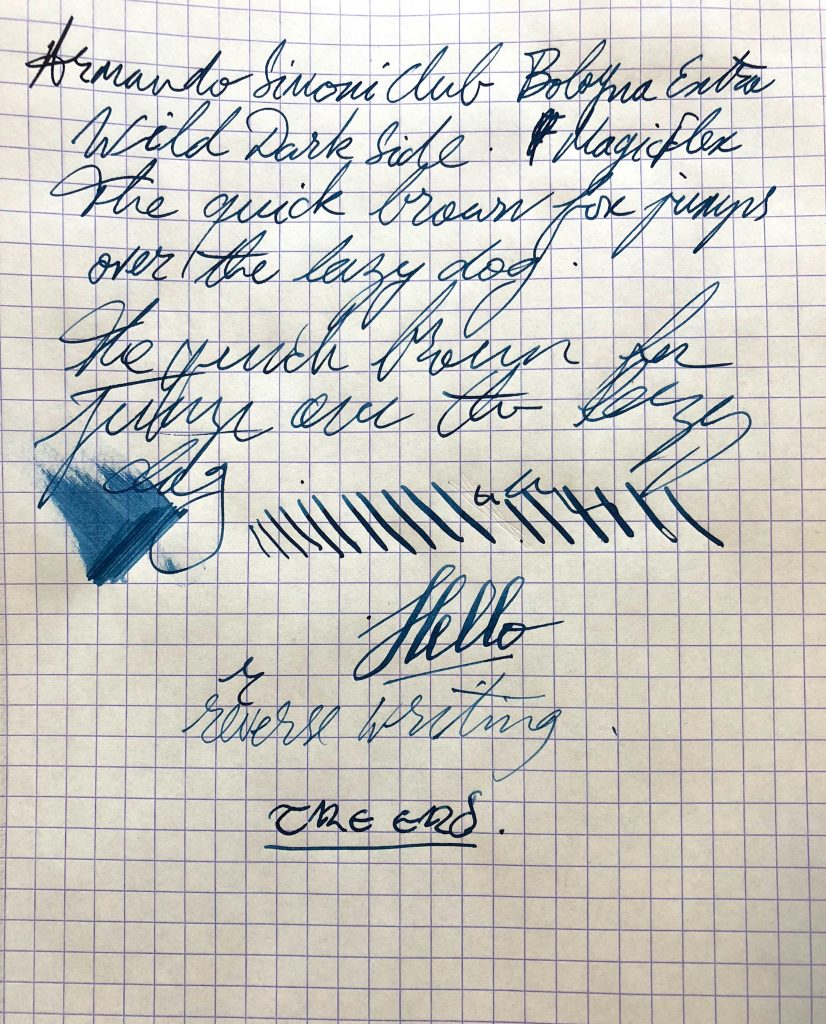 Armando Simoni Club Bologna Extra
Wild Dark Side. MagicFlex
The quick brown fox jumps
over the lazy dog.
The quick brown fox
jumps over the lazy
dog
Hello
r
reverse writing.
THE END.